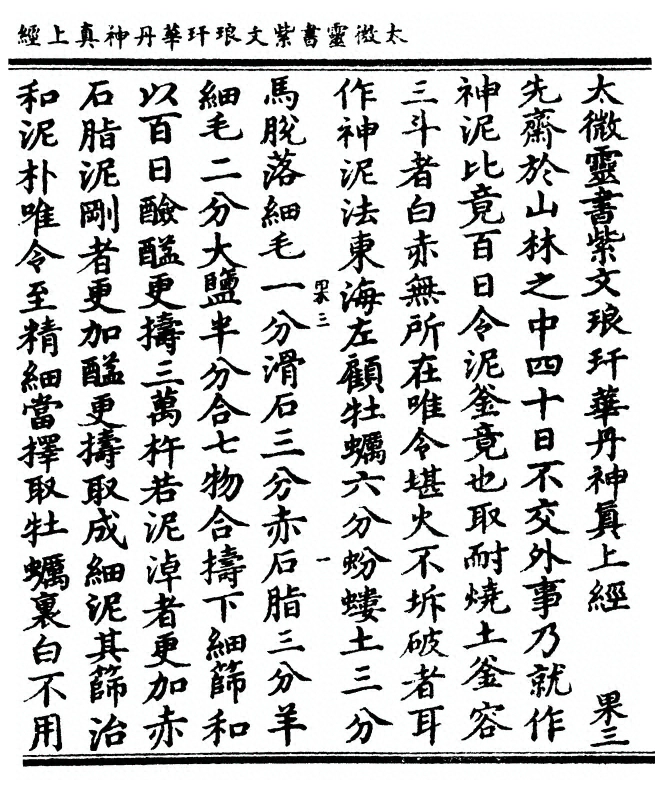 太微靈書紫文琅玕華丹神真上經
太微靈書紫文琅玕華丹神眞上經 果三
先齋於山林之中四十日不交外事乃就作
神泥比竟百日令泥釜竟也取耐燒土釜容
三斗者白赤無所在唯令堪火不坼破者耳
作神泥法東海左顧牡蠣六分蚡螻土三分
果三 一
馬脫落細毛一分滑石三分赤石脂三分羊
細毛二分大鹽半分合七物合擣下細篩和
以百日醶醯更擣三萬杵若泥淖者更加赤
石脂泥剛者更加醯更擣取成細泥其篩治
和泥朴唯令至精細當擇取牡蠣裏白不用